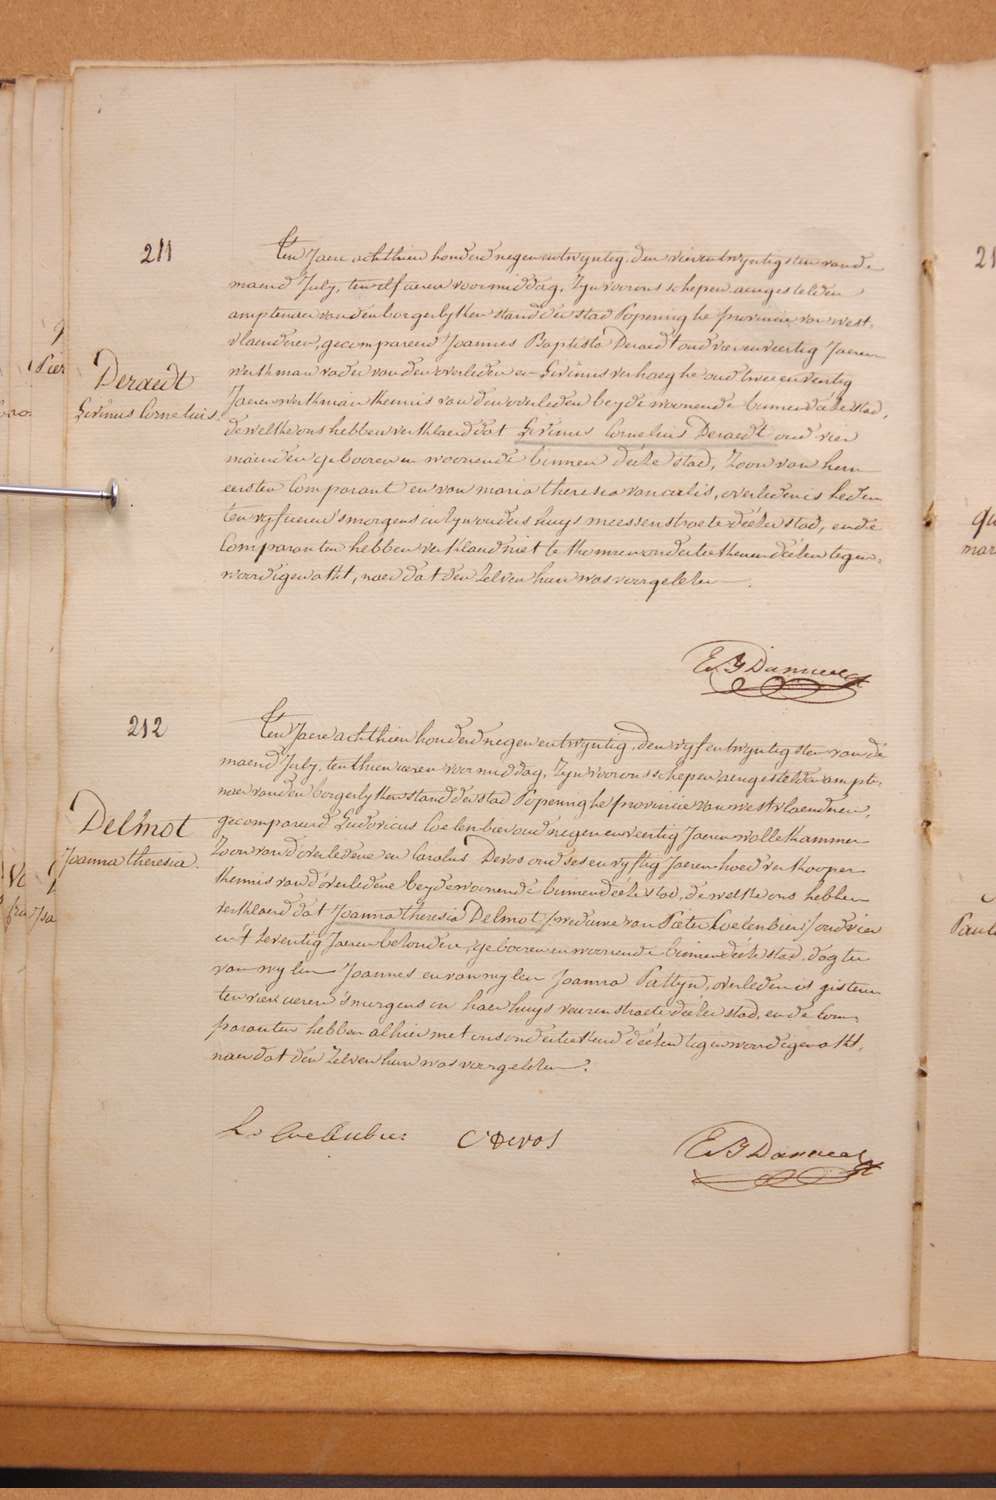 211
Ten Jaere achthien honderd negenentwyntig, den vierentwyntigsten van de
maend July, ten elf ueren voormiddag, Zyn voor ons schepen aengestelden
amptenaer van den borgerlyken stand der stad Popering he provincie van west,
vlaenderen, gecompareerd Joannes Baptiste Deraedt oud vierenveertig Jaeren
Deraedt
Livinus Cornelius
werkman vader van den overleden en Livinus verhaeghe oud twee en dertig
Jaeren werkman kennis van den overleden beyde woonende binnen déeze stad,
de welke ons hebben verklaerd dat Livinus Cornelius Deraedt oud vier
maenden gebooren en woonende binnen déeze stad, Zoon van hem
eersten Comparant en van maria theresia overleden is heden
ten vyf ueren s'morgens in Zyn ouders huys meessenstraete déezer stad, en de
Comparanten hebben verklaerd niet te konnen onderteekenen déezen tegen,
woordigen akt, naer dat den Zelven hun was voorgelezen.
212
Ten Jaere achthien honderd negenentwyntig, den vyfentwyntigsten van de
maend July, ten thien ueren voormiddag, Zyn voor ons schepen aengestelden ampte,
naer van den borgerlyken stand der stad Popering he provincie van westvlaenderen,
Delmot
Joanna theresia
gecompareerd Ludovicus Coelenbier oud negenenveertig Jaeren wollekammer
Zoon van d'overledene en Carolus Devos oud ses en vyftig Jaeren hoedverkooper
kennis van d'overledene beyde woonende binnen déeze stad, de welke ons hebben
verklaerd dat Joanna theresia Delmot /: weduwe van Pieter Coelenbier :/ oud vier
en 't Zeventig Jaeren gebooren en woonende binnen déeze stad, dogter
van wylen Joannes en van wylen Joanna Pattyn, overleden is gisteren
ten vier ueren s'morgens in haer huys déezer stad, en de Com,
paranten hebben alhier met ons onderteekend déezen tegenwoordigen akt,
naer dat den Zelven hun was voorgelezen.
C Devos